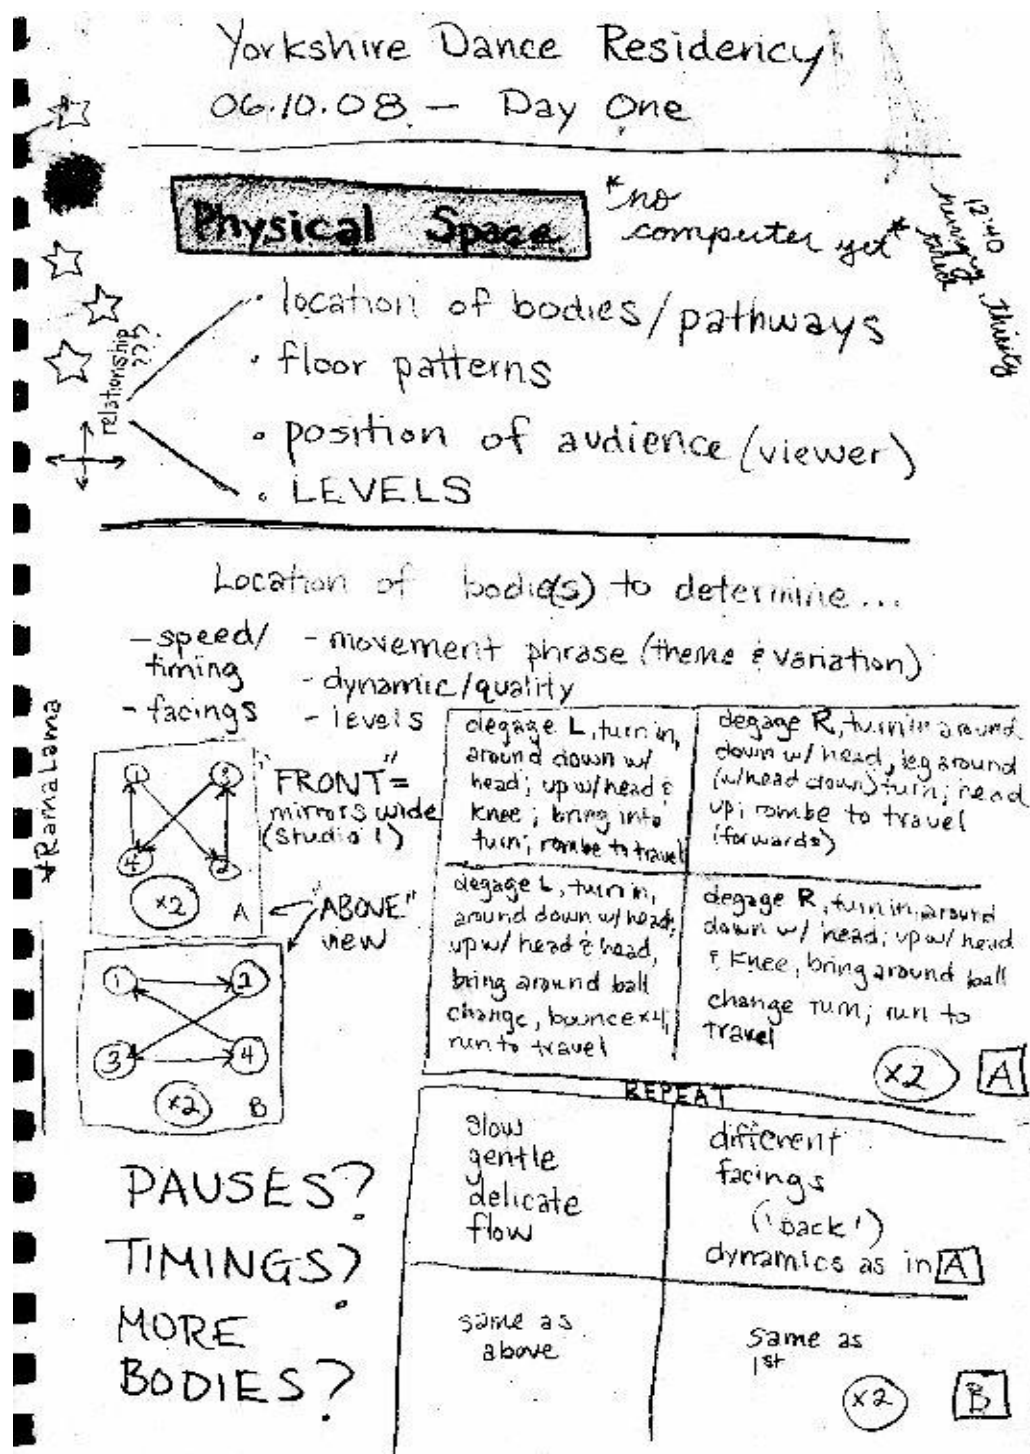 Yorkshire Dance Residency
06.10.08 - Day One
Physical Space
*no
computer yet*
12:40
hungry, thirsty
tired
relationship
???
· location of bodies/pathways
· floor patterns
· position of audience (viewer)
· LEVELS
Location of bodie(s) to determine...
- speed/
timing
- facings
- movement phrase (theme & variation)
- dynamic/quality
- levels
*RamaLama
1
3
4
2
x2
A
"FRONT"=
mirrors wide
(studio 1)
"ABOVE"
view
1
2
3
4
x2
B
degage L, turn in,
around down w/
head; up w/ head &
knee; bring into
turn; rombe to travel
degage R, turn in around
down w/ head, leg around
(w/head down) turn; head
up; rombe to travel
(forwards)
degage L, turn in,
around down w/ head,
up w/ head & head,
bring around ball
change, bounce x4,
run to travel
degage R, turn in, around
down w/ head; up w/ head
& knee, bring around ball
change turn; run to
travel
x2
A
REPEAT
slow
gentle
delicate
flow
different
facings
('back')
dynamics as in A
same as
above
same as
1st
x2
B
PAUSES?
TIMINGS?
MORE
BODIES?